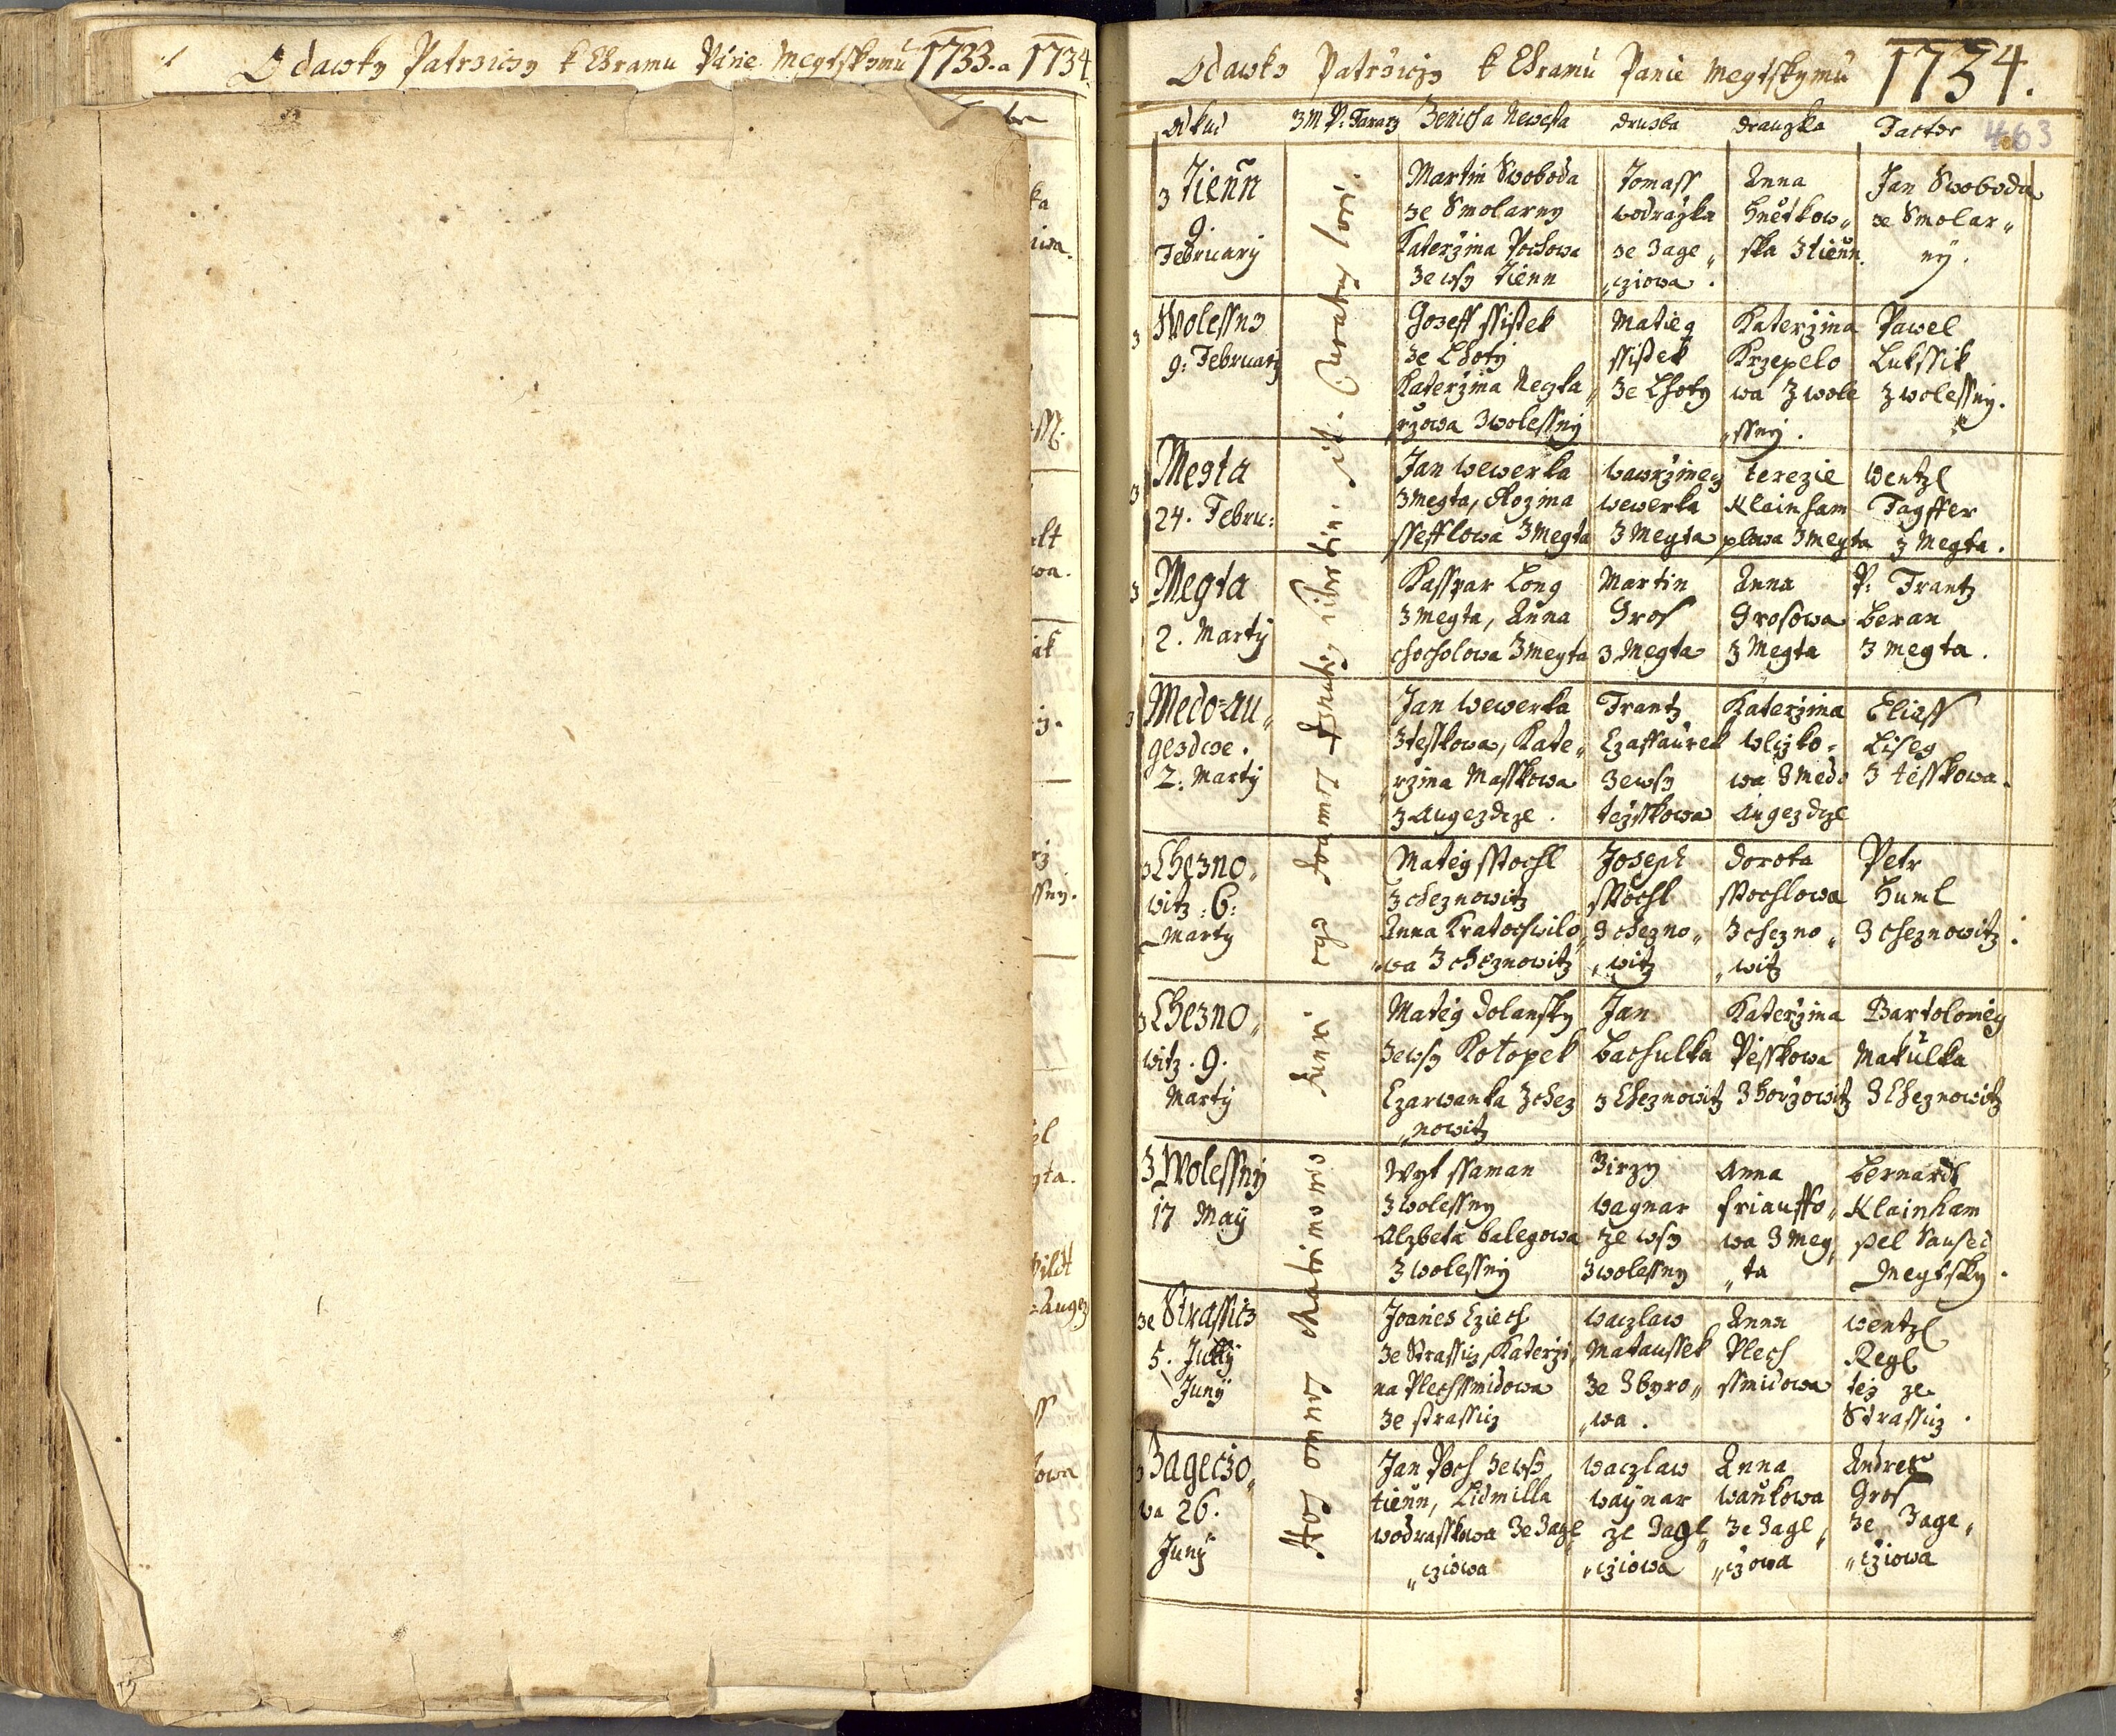 Odawky Patrzicży k Chramu Pánie Megtskymu 1733. a 1734
Odawky Patržicży k Chramu Panie Megtskymu 1734.
odkud
z M P: Fararz
Zenicha Newesta
druzba
drauzka
Factor 463
z Tienn
9.
February
Martin Swoboda
ze Smolarny
Katerżina Pochowa
ze wsy Tienn
Tomass
wodrażka
ze Zage„
„cziowa.
Anna
Hnětkow„
ska z tienn.
Jan Swoboda
ze Smolar„
ny.
z Wolessny
9. February
Gozeff ssistek
ze Lhoty
Katerżina Negta„
rzowa z wolessny
Matieg
ssistek
ze Lhoty
Katerżina
Krzepelo
wa z wole
„ssny.
Pawel
Lukssik
z wolessny.
z Megta
24. Febru:
Jan wewerka
z Megta, Rozina
ssefflowa z Megta
wawrżinecz
wewerka
z Megta
terezie
Klainham
plowa z Megta
Wentzl
Tagffer
z Megta.
z Megta
2. Marty
Kasspar Long
z Megta, Anna
chocholowa z Megta
Martin
Gros
z Megta
Anna
Grosowa
z Megta
P: Frantz
beran
z megta.
z Medo=au„
gezdcze.
2. Marty
Jan wewerka
z tesskowa, Kate„
„rzina Masskowa
z Augezdcze.
Frantz
Czassaurek
ze wsy
teysskowa
Katerżina
Wlczko=
wa z Medo
Augezdcze
Eliass
Liseg
z tesskowa.
z Chezno„
witz : 6:
Marty
Matieg sstochl
z cheznowitz
Anna Kratochwilo„
„wa z cheznowitz
Joseph
sstochl
z chezno„
„witz
dorota
sstochlowa
z chezno„
„witz
Petr
Huml
z cheznowitz.
z Chezno„
witz . 9.
Marty
Matieg dolansky
ze wsy Kotopek
Czarwanka z chez
„nowitz
Jan
bachulka
z Cheznowitz
Katerżina
Pesskowa
z horżowitz
Bartolomieg
Makulka
z Cheznowitz
z Wolessny
17 May
Wyt ssaman
z wolessny
Alzbeta balegowa
z wolessny
Jirzy
wagnar
ze wsy
z wolessny
Anna
friauffo„
wa z Meg„
„ta
bernardt
Klainham
pel Saused
Megtsky.
ze Strassicz
5. July
Juny
Joanes Cziech
ze Strassicz, Katerżi„
na Plechssmidowa
ze strassicz
waczlaw
Mataussek
ze Zbyro„
„wa.
Anna
Plech
ssmidowa
wentzl
Regl
tez ze
Strassicz.
z Zageczo„
wa 26.
Juny
Jan Poch ze wsy
tienn, Lidmilla
wodrasskowa ze Zage„
„cziowa
waczlaw
waynar
ze Zage„
„cziowa
Anna
wankowa
ze Zage„
„czowa
Andres
Gros
ze Zage„
„cziowa
Hos omnes Matrimonio junxi ego